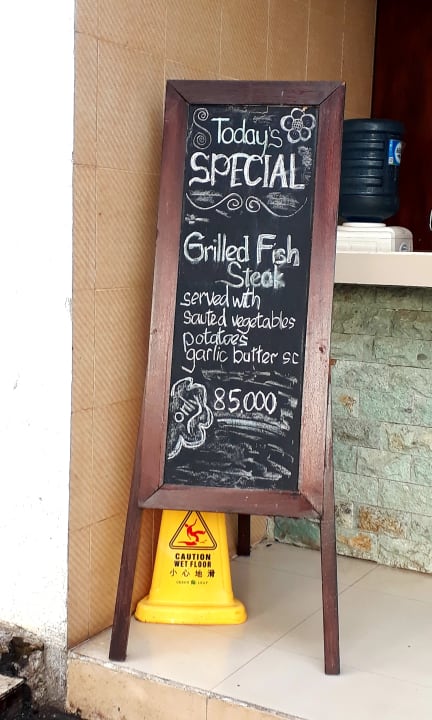 Today's
SPECIAL
Grilled Fish
Steak
served with
sauted vegetables
potatoes
garlic butter sc
85.000
CAUTION
WET FLOOR
小心地滑